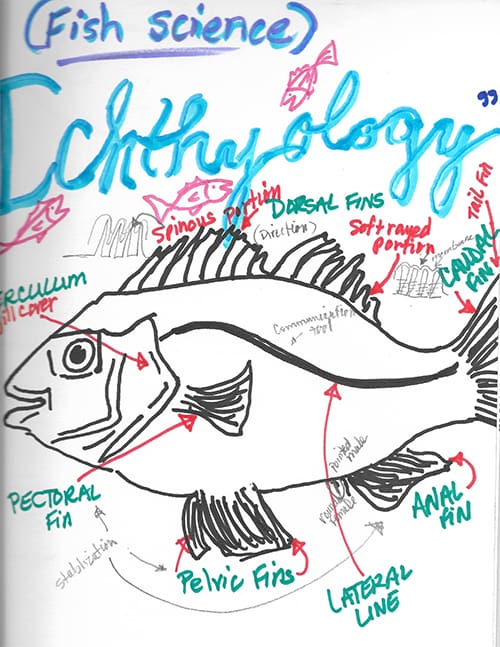 (Fish science)
Ichthyology
Spinous portion
DORSAL FINS
(Direction)
Soft rayed
portion
membrane
TAIL FIN
CAUDAL
FIN
ERCULUM
ill cover
Communication
tool
PECTORAL
Fin
Stabilization
Pelvic Fins
pointed male
rounded female
ANAL
FIN
LATERAL
LINE